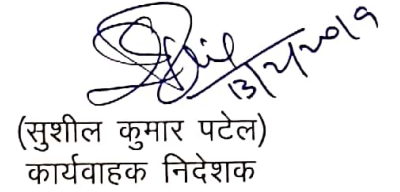 13/2/2019
(सुशील कुमार पटेल)
कार्यवाहक निदेशक